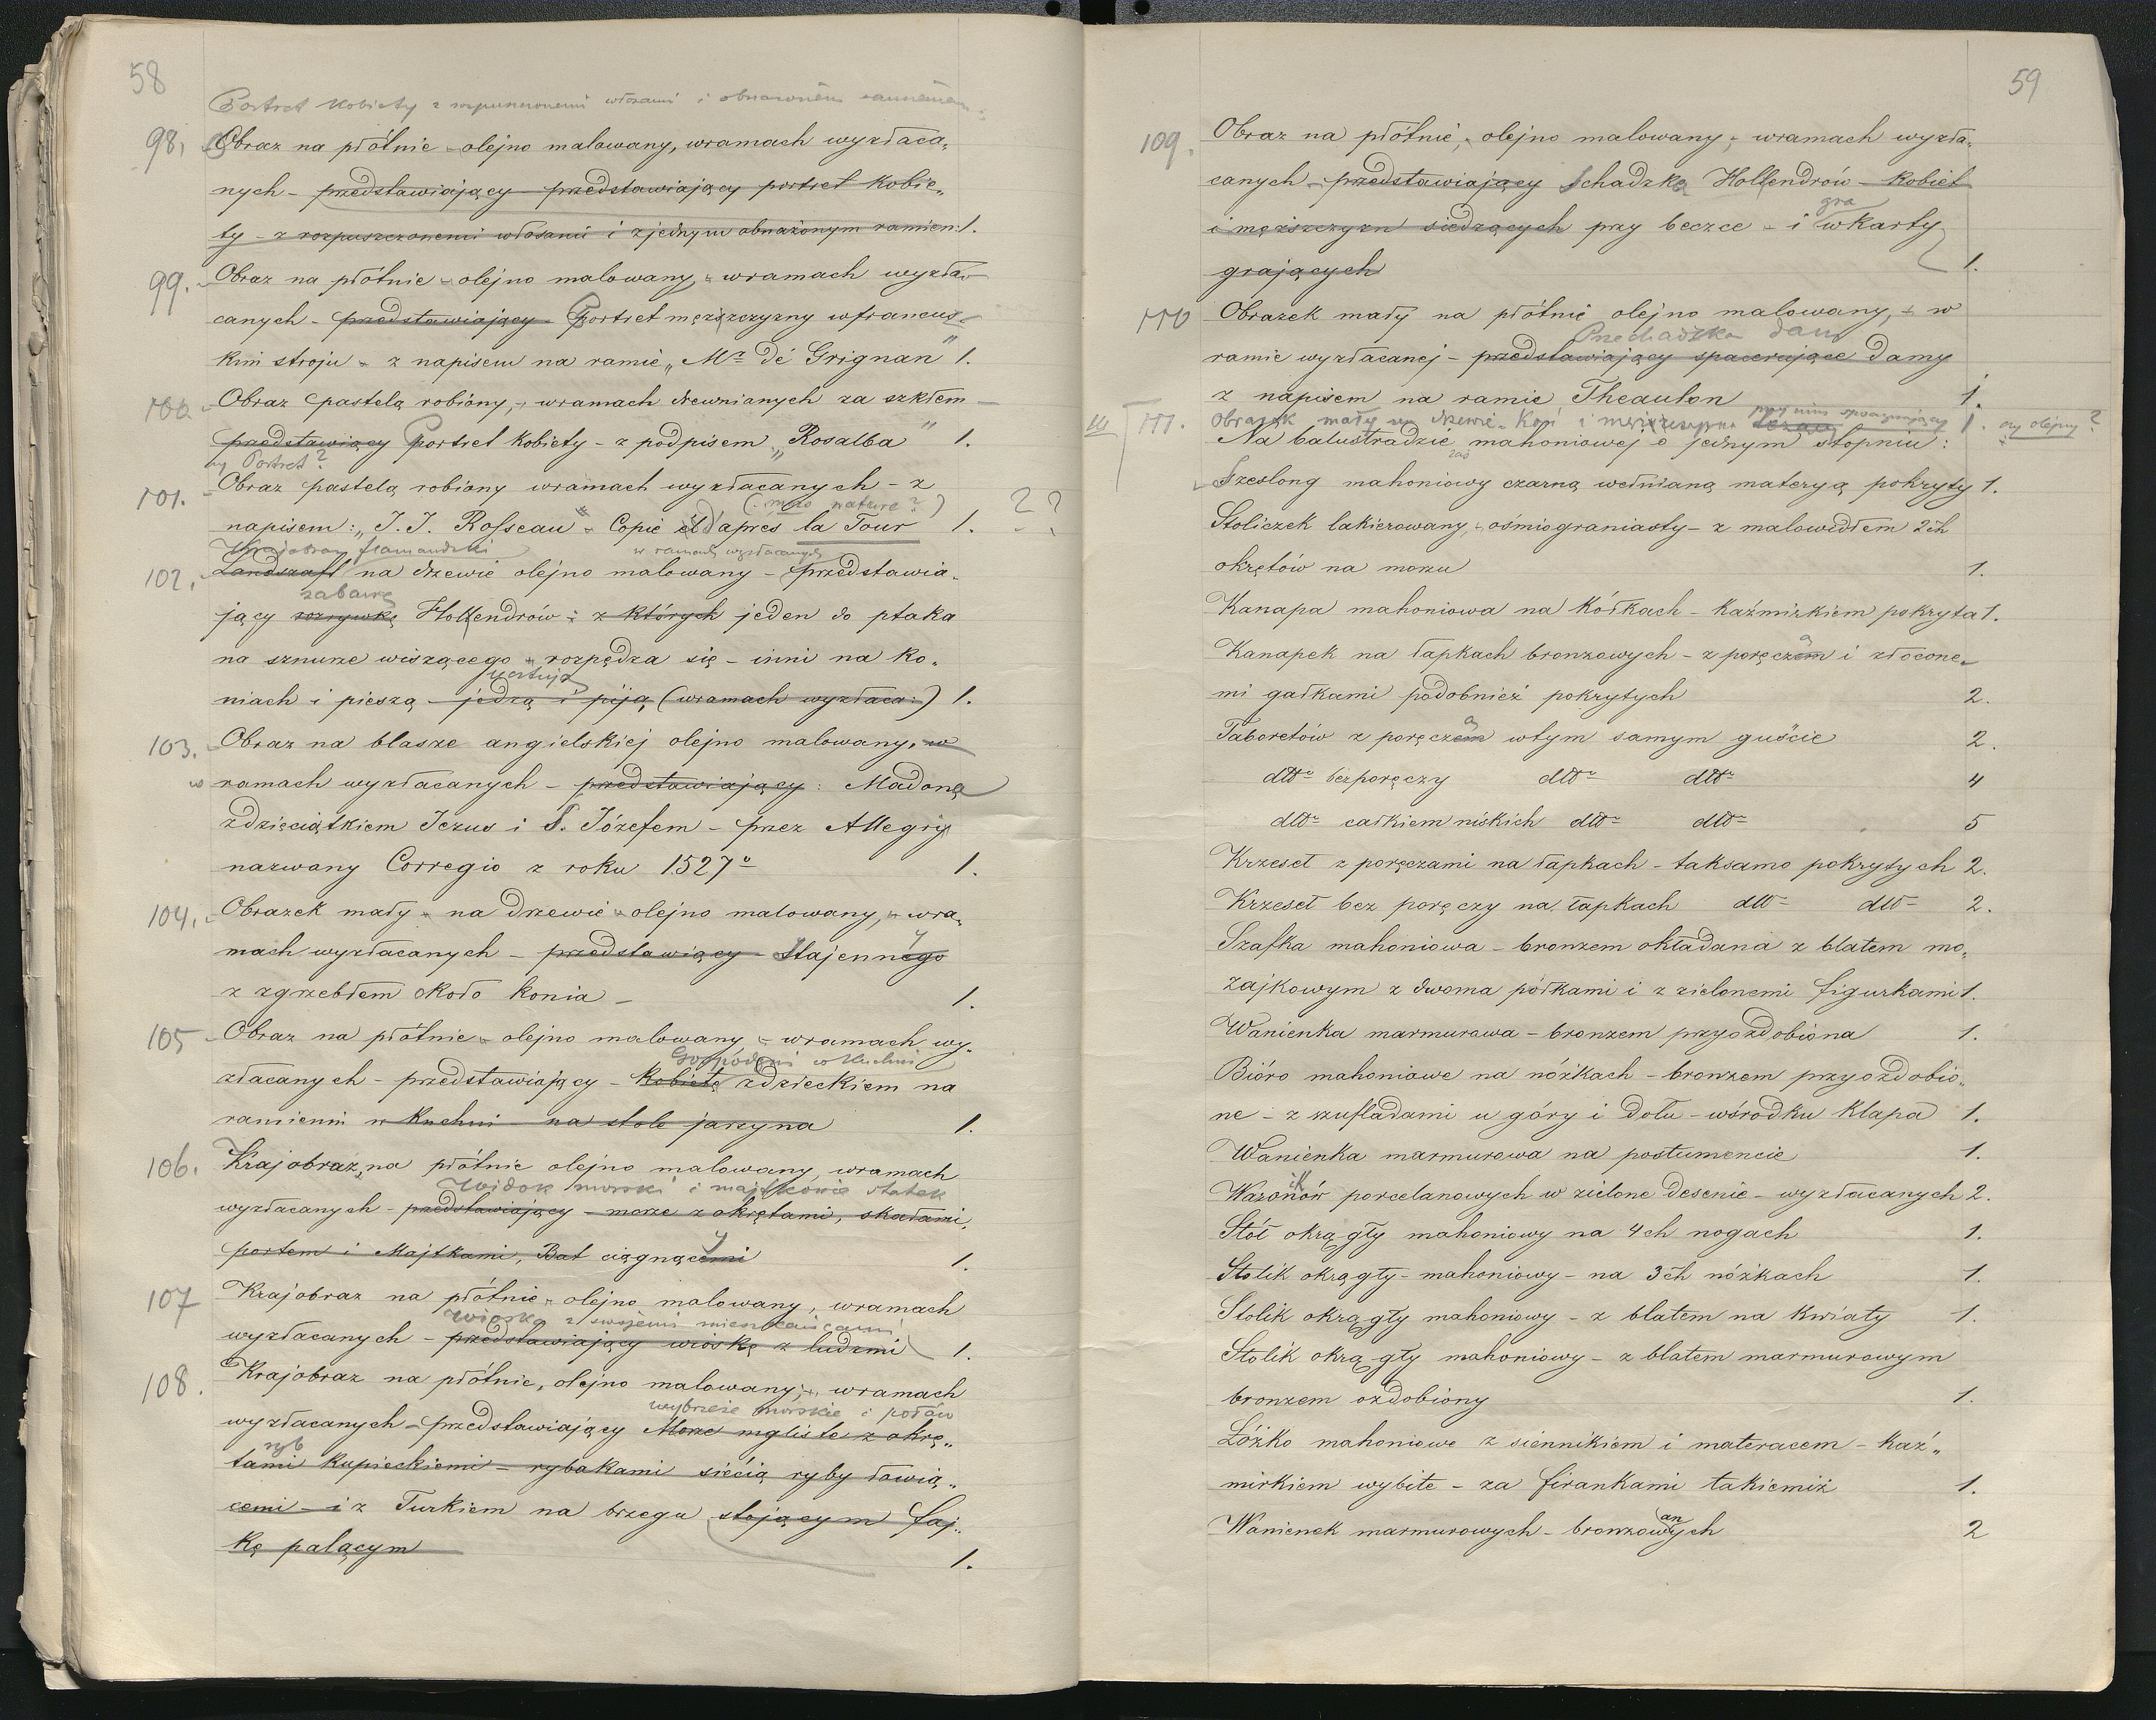 58
Portret kobiety z rozpuszczonemi włosami i obnażoném ramieniem
98, Obraz na płótnie - olejno malowany, wramach wyzłaca„
nych - przedstawiający - przedstawiający portret kobie„
ty - z rozpuszczonemi włosami i z jednym obnażonym ramien: 1.
99. Obraz na płótnie - olejno malowany, - wramach wyzła„
canych - przedstawiający - Portret mężczyzny wfrancuz„
kim stroju - z napisem na ramie „Mr dé Grignan" 1.
100. Obraz pastelą robiony, - wramach drewnianych za szkłem -
przedstawiący Portret kobiety - z podpisem „Rosalba" 1.
czy Portret?
101. Obraz pastelą robiony wramach wyzłacanych - z
(: nature ? )
napisem: „J. J. Rosseau" - Copié d'aprés la Tour 1. ? ?
Krajobraz flamandzki w ramach wyzłacanych
102. Landszaft na drzewie olejno malowany - przedstawia„
zabawę
jący rozrywkę Hollendrów - z których jeden do ptaka
na sznurze wiszącego - rozpędza się - inni na ko„
ucztują
niach i pieszą - jedzą i piją, (wramach wyzłaca:) 1.
103. Obraz na blasze angielskiej olejno malowany, w
w ramach wyzłacanych - przedstawiający: Madonę
zdzięciątkiem Jezus i S. Józefem - przez Allegry
nazwany Corregio z roku 1527º 1.
104. Obrazek mały - na drzewie - olejno malowany, - wra„
y
mach wyzłacanych - przedstawiący Stajennego
z zgrzebłem około konia - 1.
105 Obraz na płótnie - olejno malowany - wramach wy„
Gospodyni w kuchni
złacanych - przedstawiający - kobietę zdzieckiem na
ramieniu w kuchni - na stole jarzyna 1.
106. Krajobraz, na płótnie olejno malowany, wramach
Widok morski i majtkowie statek
wyzłacanych - przedstawiający - morze z okrętami, skałami,
y
portem i Majtkami, Bat ciągnącemi 1.
107 Krajobraz na płótnie - olejno malowany, wramach
Wioska z swojemi mieszkańcami
wyzłacanych - przedstawiający wioskę z ludzmi 1.
108. Krajobraz na płótnie, olejno malowany, - wramach
wybrzeże morskie i połów
wyzłacanych - przedstawiający Morze mgliste z okrę„
ryb
tami kupieckiemi - rybakami siécią ryby łowią„
cemi - i z Turkiem na brzegu stojącym faj„
kę palącym 1.
59
109. Obraz na płótnie, - olejno malowany, - wramach wyzła„
canych - przedstawiający Schadzka Hollendrów - kobiet
gra
i męższczyzn siedzących przy beczce - i wkarty
grających 1.
110 Obrazek mały na płótnie olejno malowany, - w
Przechadzka dam
ramie wyzłacanej - przedstawiający spacerujące damy
z napisem na ramie Theaulon 1.
przy nim spoczywający
111. Obrazek mały na drzewie - Koń i mężczyzna 1. czy olejny?
Na balustradzie mahoniowej o jednym stopniu:
zaś
Szeslong mahoniowy czarną wełnianą materyą pokryty 1.
Stoliczek lakierowany, - ośmiograniasty - z malowidłem 2ch
okrętów na morzu 1.
Kanapa mahoniowa na kółkach - kaźmirkiem pokryta 1.
a
Kanapek na łapkach bronzowych - z poręczem i złocone„
mi gałkami podobnież pokrytych 2.
a
Taboretów z poręczem wtym samym guście 2.
dtto bez poręczy dtto dtto 4
dtto całkiem niskich dtto dtto 5
Krzeseł z poręczami na łapkach - taksamo pokrytych 2.
Krzeseł bez poręczy na łapkach dtto dtto 2.
Szafka mahoniowa - bronzem okładana z blatem mo„
zajkowym z dwoma półkami i z zielonemi figurkami 1.
Wanienka marmurowa - bronzem przyozdobiona 1.
Bióro mahoniowe na nóżkach - bronzem przyozdobio„
ne - z szufladami u góry i dołu - wśrodku klapa 1.
Wanienka marmurowa na postumencie 1.
ik
Wazonów porcelanowych w zielone desenie - wyzłacanych 2.
Stół okrągły mahoniowy na 4ch nogach 1.
Stolik okrągły - mahoniowy - na 3ch nóżkach 1.
Stolik okrągły mahoniowy - z blatem na kwiaty 1.
Stolik okrągły mahoniowy - z blatem marmurowym
bronzem ozdobiony 1.
Łóżko mahoniowe z siennikiem i materacem - kaź„
mirkiem wybite - za firankami takiemiż 1.
an
Wanienek marmurowych - bronzowych 2